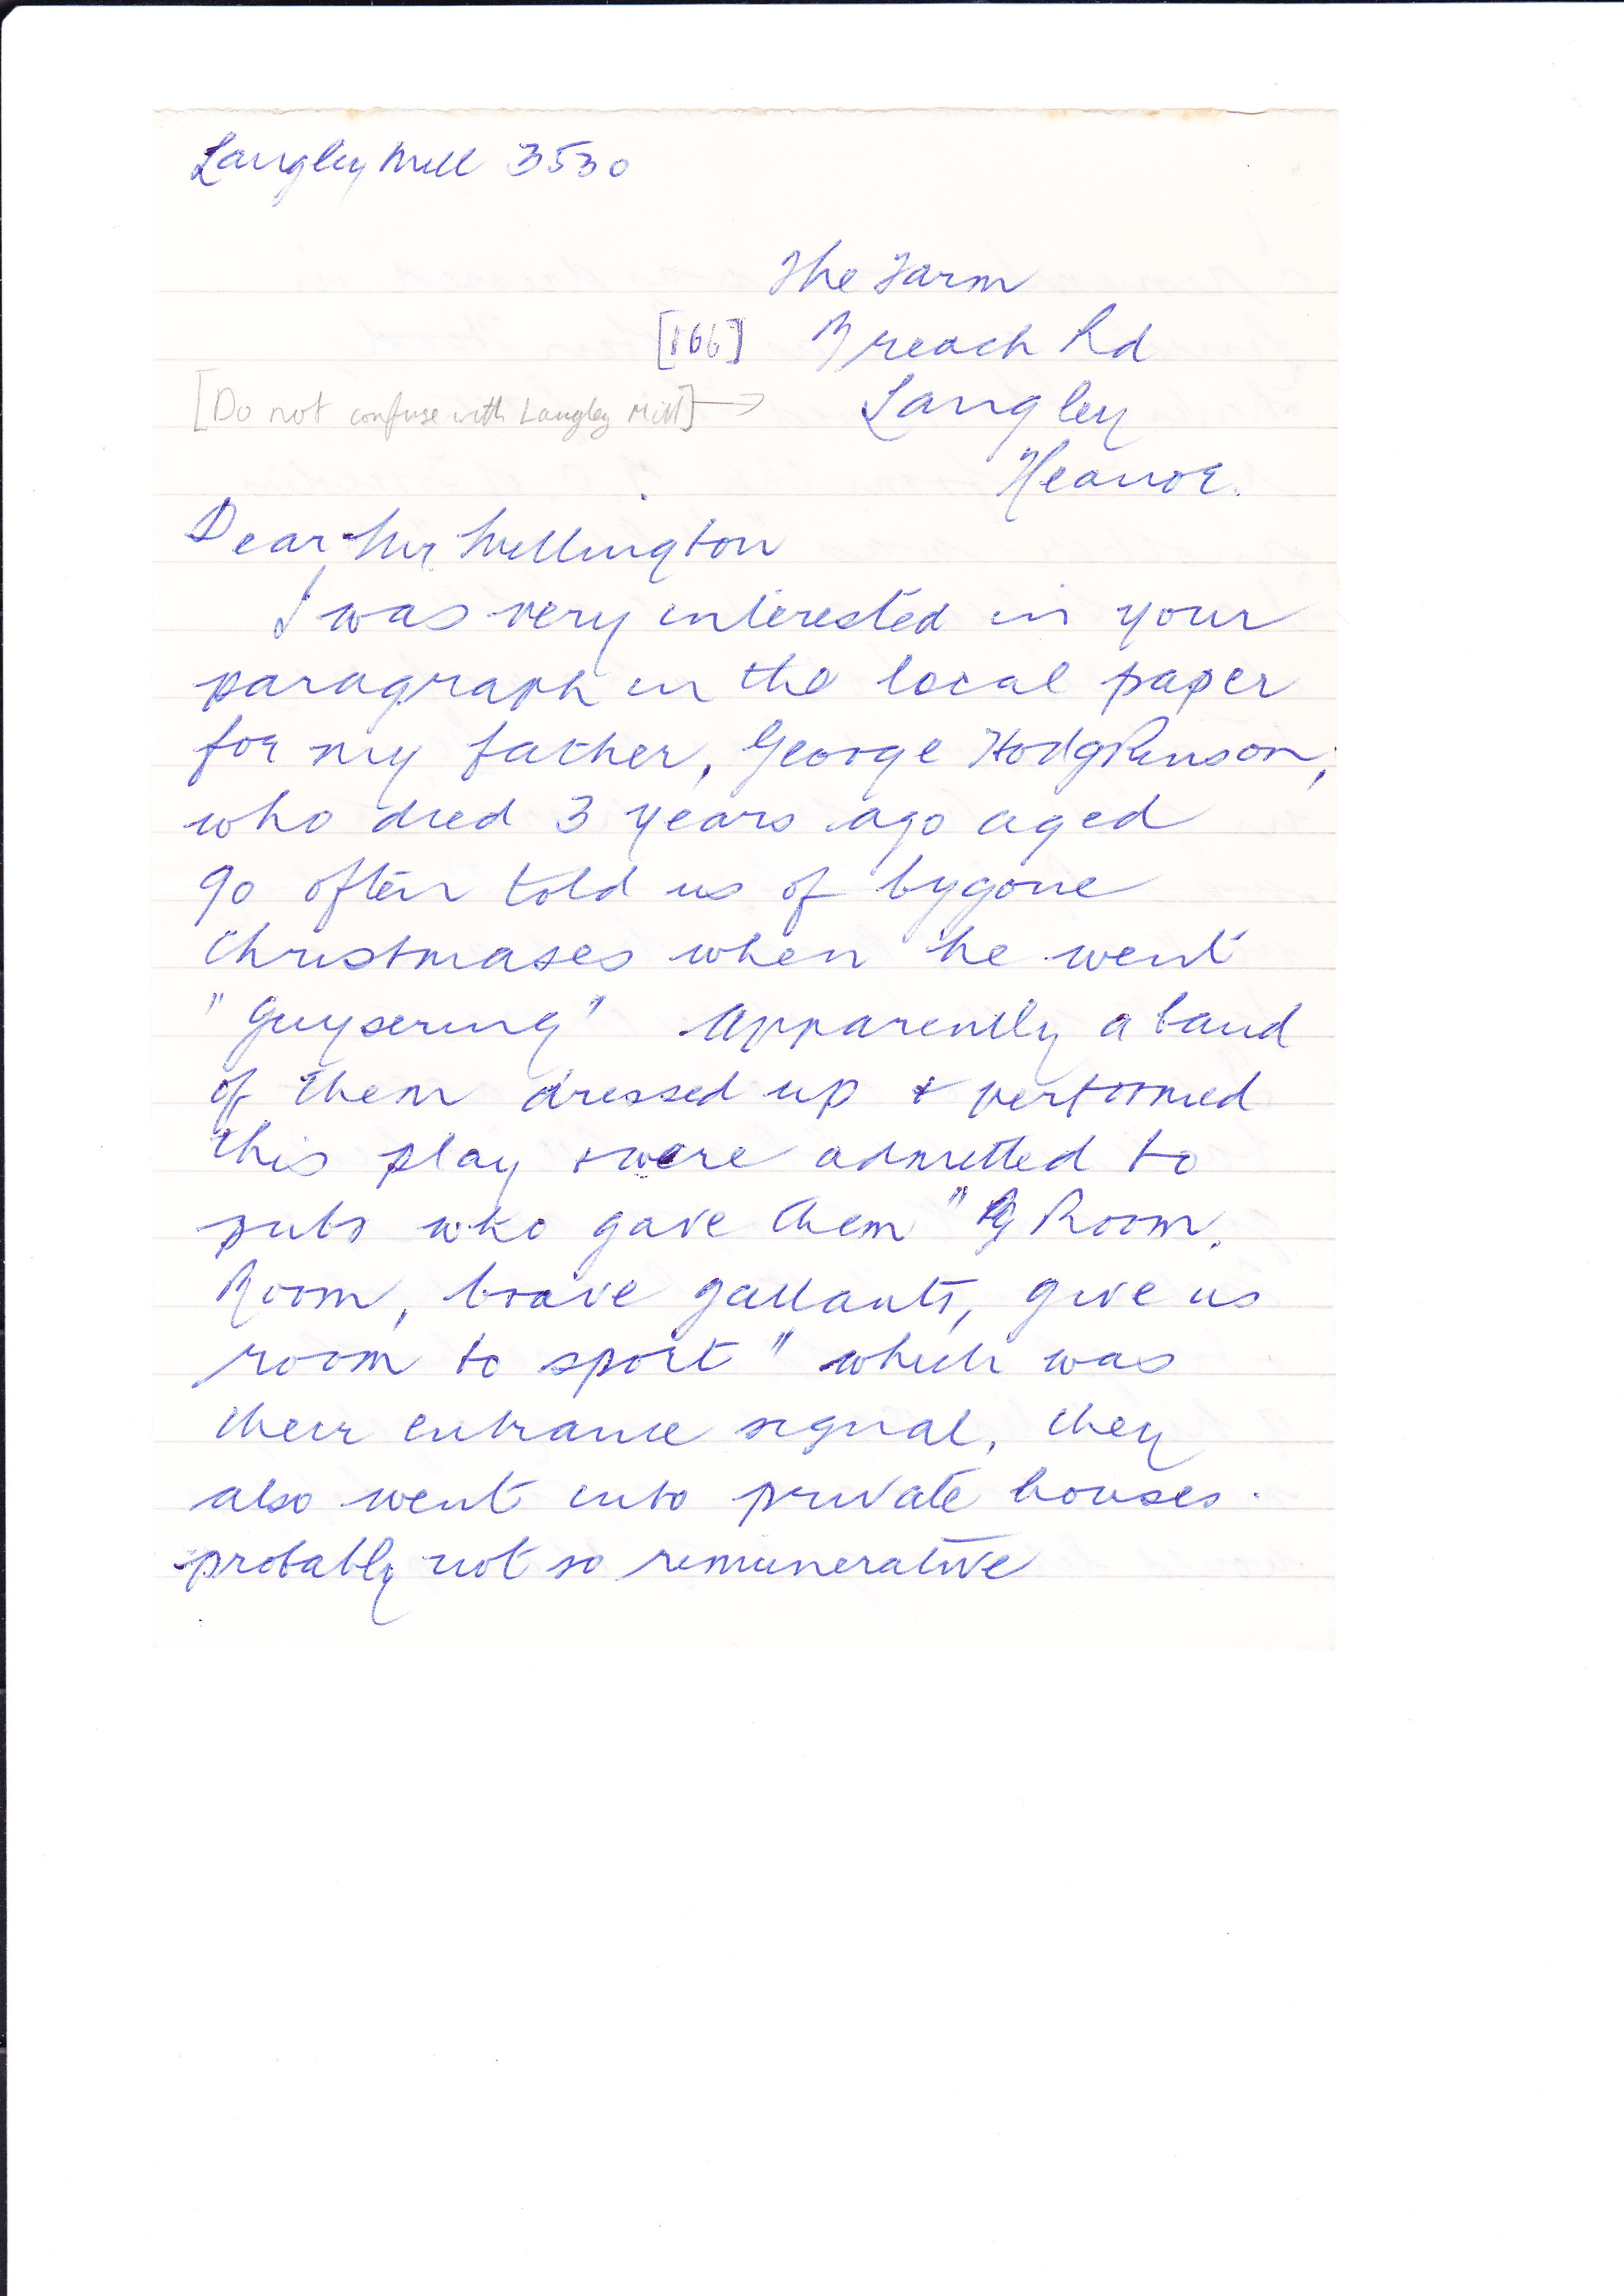 Langley Mill 3530
The Farm
[166] Breach Rd
[Do not confuse with Langley Mill] → Langley
Heanor.
Dear Mr Millington
I was very interested in your
paragraph in the local paper
for my father, George Hodgkinson,
who died 3 years ago aged
90 often told us of bygone
Christmases when he went
"Guysering" Apparently a band
of them dressed up & performed
this play & were admitted to
pubs who gave them " Room,
Room, brave gallants, give us
room to sport" which was
their entrance signal, they
also went into private houses.
probably not so remunerative